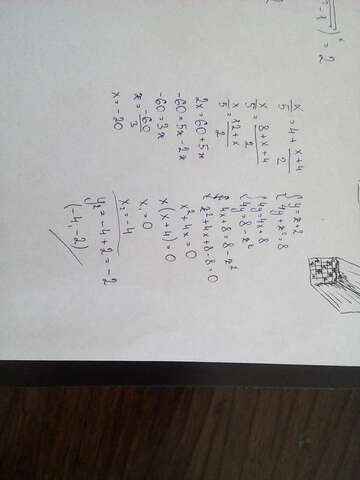 x/5 = 4 + (x+4)/2
x/5 = (8+x+4)/2
x/5 = (12+x)/2
2x = 60+5x
-60 = 5x-2x
-60 = 3x
x = -60/3
x = -20
{ y = x+2
{ 4y + x² = 8
{ 4y = 4x+8
{ 4y = 8-x²
4x+8 = 8-x²
x²+4x+8-8 = 0
x²+4x = 0
x(x+4) = 0
x₁ = 0
x₂ = -4
y₂ = -4+2 = -2
(-4; -2)
= 2